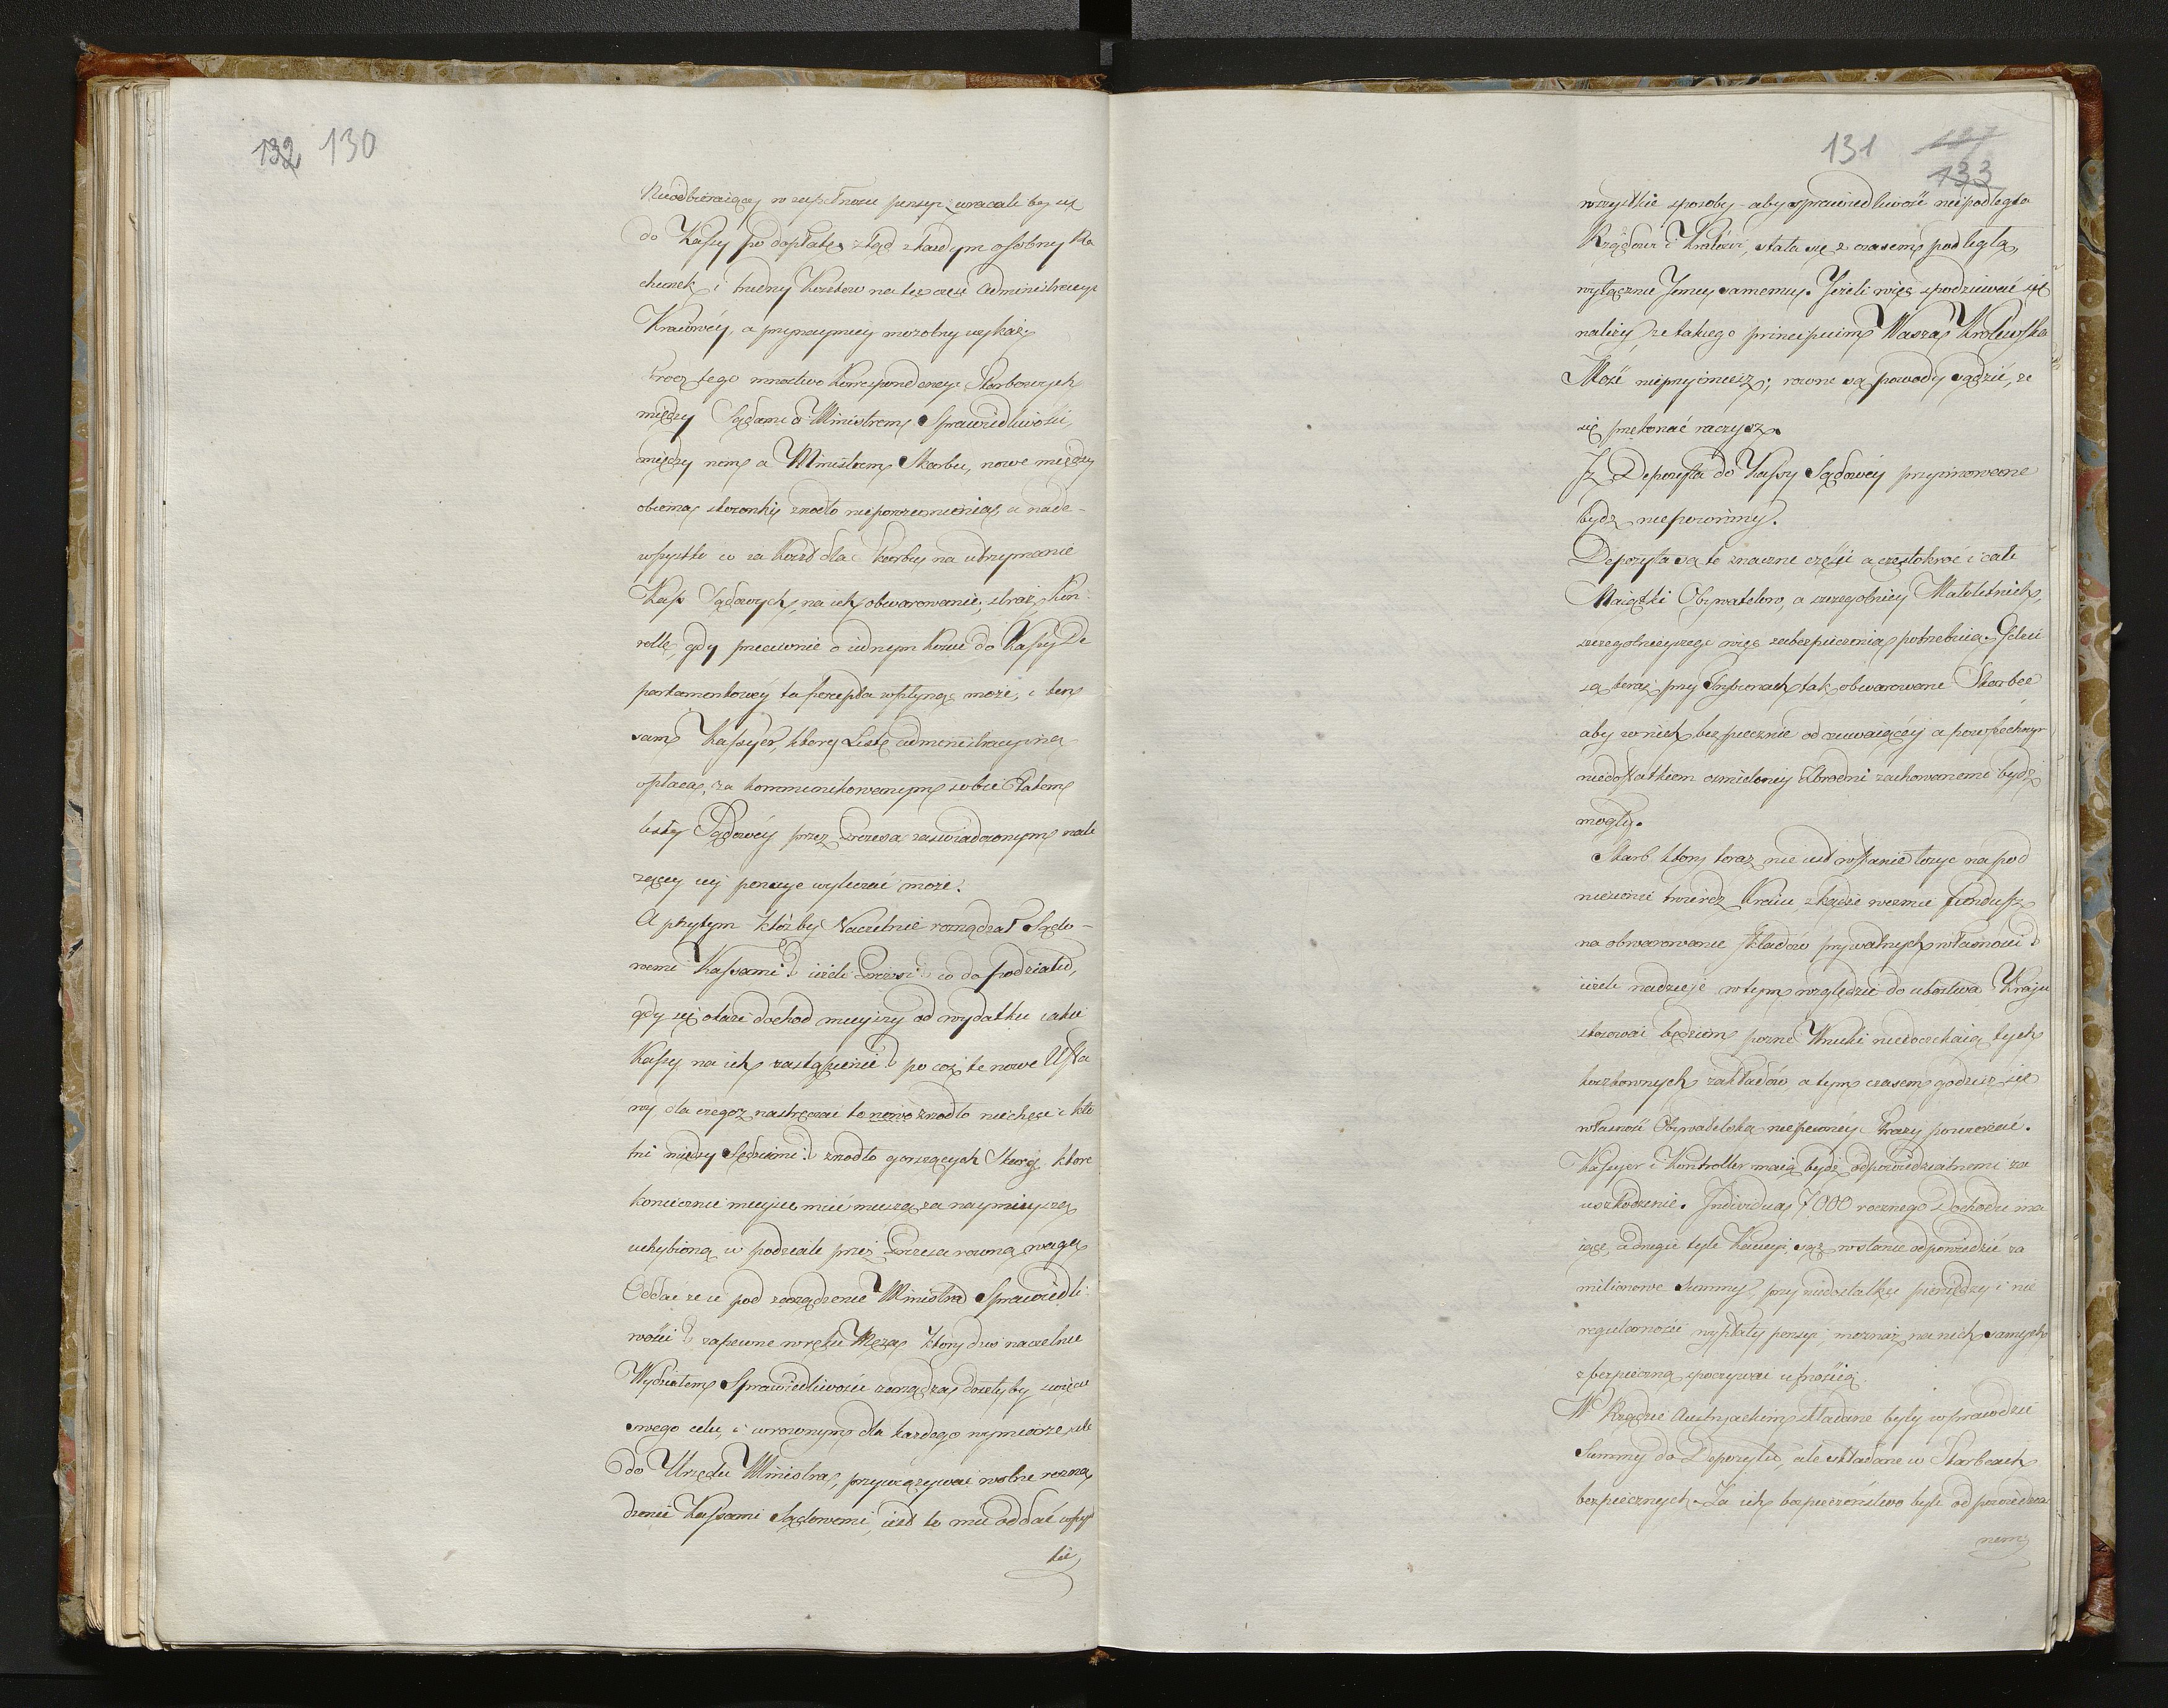 132 130
Nieodbieraiący w zupełności pensyi, wracali by się
do Kassy po dopłatę, ztąd z każdym osobny Ra
chunek i trudny Kościow na tę część Administracyi
Kraiowéy, a przynaymniey mozolny wykaz.
Procz tego mnostwo Korrespondencyi Skarbowych
między Sądami a Ministrem Sprawiedliwości,
między nim a Ministrem Skarbu, nowe między
obiema stosunki, zrodło nieporozumienia, a nade-
wszystko co za Koszt dla Skarbu na utrzymanie
Kass Sądowych, na ich obwarowanie, straż, Kon-
rollę, gdy przeciwnie o iednym Koszcie do Kassy De
partamentowéy ta percepta wpłynąć może, i ten
sam Kassyer, ktory Listę administracyiną
opłaca, za kommunikowanym sobie Etatem
listy Sądowéy przez Prezesa zaświadczonym nale
żącey iéy pensye wyliczać może.
A przytym któżby Naczelnie rozrządzał Sądo-
wemi Kassami? ieżeli Prezesi? co do podziału,
gdy się okaże dochod mnieyszy od wydatku iakie
Kassy na ich zastąpienie? po coż te nowe Usta
wy, dla czegoż nastręczać to nowe zrodło niechęci i kłó
tni między Sędziami? zrodło gorszących Skarg, ktore
koniecznie mieysce mieć muszą za naymnieyszą
uchybioną w podziale przez Prezesa rowną wagę
Oddać że ie pod zarządzenie Ministra Sprawiedli-
wości? zapewne w ręku Męża, ktory dziś naczelnie
Wydziałem Sprawiedliwości zarządza, doszły by swoiego
swego celu, i w rownym dla każdego wymiarze, ale
do Urzędu Ministra, przywiązywać wolne rozrzą
dzenie Kassami Sądowemi, iest to mu oddać wszys
tkie
131 137
133
wszystkie sposoby aby sprawiedliwość niepodległa
Rządowi i Krolowi, stała się z czasem podległą,
wyłącznie Jemu samemu. Jeżeli więc spodziewać się
należy, że takiego principium Wasza Krolewska
Mość nieprzyimiesz; rowne są powody sądzić, że
się przekonać raczysz.
Iż Depozyta do Kassy Sądowéy przyimowane
bydź niepowinny.
Depozyta są to znaczne części a częstokroć i całe
Maiątki Obywatelow, a szczegolniey Małoletnich,
szczegolnieyszego więc zabezpieczenia potrzebuią. Gdzież
są teraz przy Trybunałach tak obwarowane Skarbce
aby w nich bezpiecznie od czuwaiącéy a powszechnym
niedostatkiem ośmieloney Zbrodni zachowanemi bydź
mogły.
Skarb ktory teraz nie iest w stanie łożyć na pod
niesienie twierdz Kraiu, zkądże weźmie fundusz
na obwarowanie składow prywatnych własności?
ieżeli nadzieje w tym względzie do ubostwa Kraju
stosować będziem, pozne Wnuki niedoczekaią tych
kosztownych zakładow a tym czasem godziż się
własność Obywatelską niepewnéy straży powierzać.
Kassyer i Kontroller maią bydź odpowiedzialnemi za
uszkodzenie. Individua, 7000 rocznego Dochodu ma
iące, a drugie tyle Kaucyi, sąż w stanie odpowiedzić za
milionowe Summy, przy niedostatku pieniędzy i nie
regularności wypłaty pensyi, możnaż na nich samych
z bezpieczną spoczywać ufnością.
W Rządzie Austryackim składane były wprawdzie
Summy do Depozytu, ale składane w Skarbcach
bezpiecznych. Za ich bezpieczeństwo byli odpowiedzial
nemi